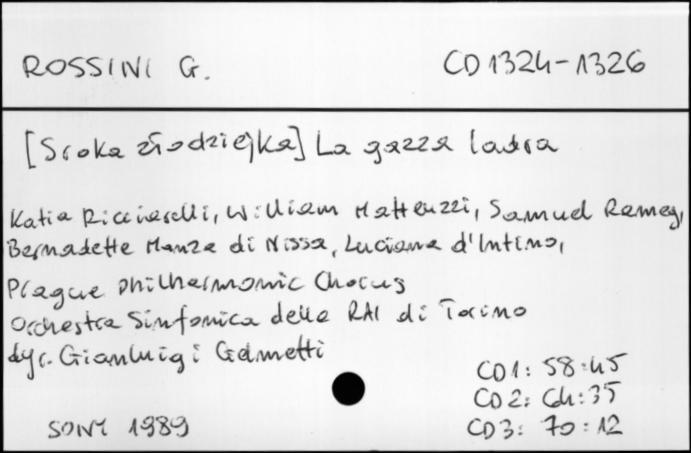 ROSSINI G.
CD 1324-1326
[Sroka złodziejka] La gazza ladra
Katia Ricciarelli, William Matteuzzi, Samuel Ramey,
Bernadette Manza di Nissa, Luciana d'Intino,
Prague Philharmonic Chorus
Orchestra Sinfonica della RAI di Torino
dyr. Gianluigi Gelmetti
CD 1: 58:45
CD 2: 64:35
SONY 1989
CD 3: 70:12